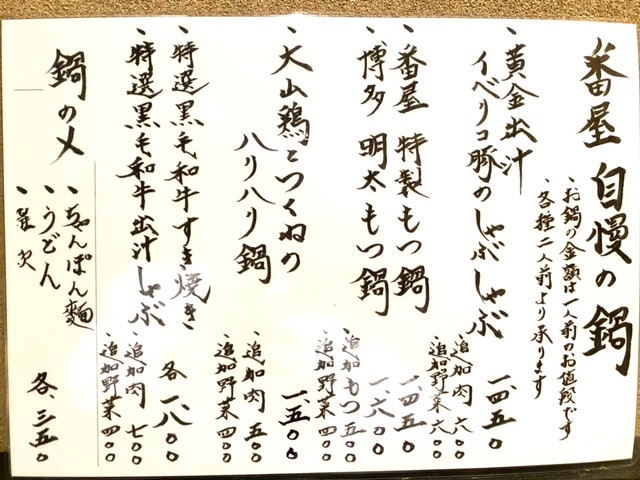 番屋 自慢の鍋
、お鍋の金額は一人前のお値段です
、各種二人前より承ります
、黄金出汁
イベリコ豚のしゃぶしゃぶ 一、四五〇
、追加肉 六〇〇
、追加野菜 六〇〇
、番屋 特製もつ鍋 一四五〇
、博多 明太もつ鍋 一、六〇〇
、追加もつ 五〇〇
、追加野菜 四〇〇
、大山鶏とつくねの
ハリハリ鍋 一、五〇〇
、追加肉 五〇〇
、追加野菜 四〇〇
、特選黒毛和牛すき焼き
、特選黒毛和牛出汁しゃぶ 各一、八〇〇
、追加肉 七〇〇
、追加野菜 四〇〇
鍋の〆
、ちゃんぽん麺
、うどん
、雑炊 各、三五〇